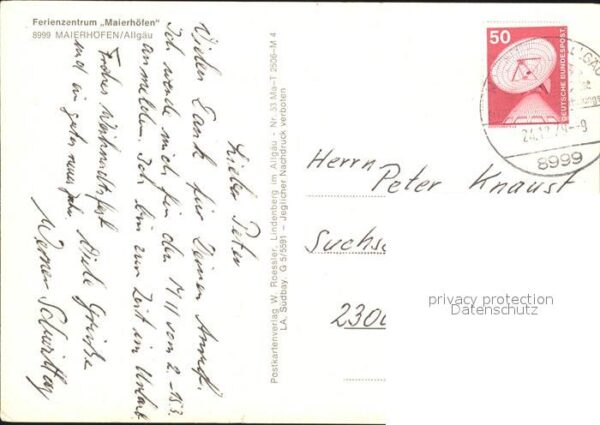 Ferienzentrum „Maierhöfen"
8999 MAIERHÖFEN/Allgäu
Lieber Peter
Vielen Dank für Deinen Anruf.
Ich werde mich für den 14/11 vom 2.-15.3.
anmelden. Ich bin zur Zeit im Urlaub.
Frohes Weihnachtsfest
und ein gutes neues Jahr
Viele Grüße
Werner
Postkartenverlag W. Roessler, Lindenberg im Allgäu - Nr. 53 Ma-T 2506-M 4
LA. Südbay. G 5/5591 - Jeglicher Nachdruck verboten
50
DEUTSCHE BUNDESPOST
24.12.79-9
8999
Herrn
Peter Knaust
Suchs
2300
privacy protection
Datenschutz